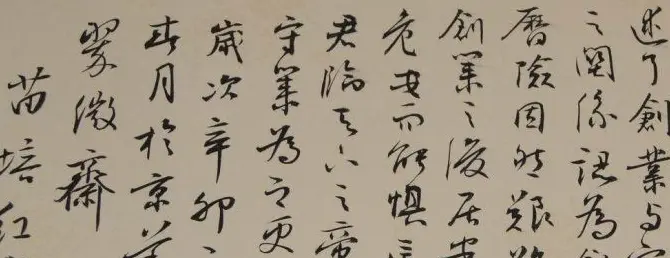 述了創業与守
之関係認為創
曆險固然艱難
創業之後居安
危安而能懼
君臨天下之帝
守業為之更
歲次辛卯
春月於京華
翠微齋
苗培紅